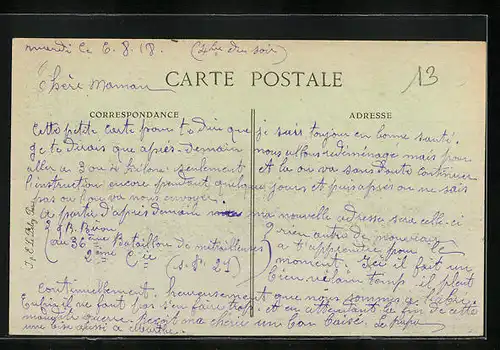 mardi le 6.8.18. (4h du soir)
13
Chère Maman
CARTE POSTALE
CORRESPONDANCE
ADRESSE
Cette petite carte pour te dire que je suis toujours en bonne santé.
Je te dirais que après-demain nous allons redéménagé mais pour
aller a 3 ou 4 kilom. seulement et la ou va sans doute continuer
l'instruction encore pendant quelque jours et puis après on ne sais
pas ou on va nous envoyer.
a partir d'après demain ma nouvelle adresse sera celle-ci
au 36ème Bataillon de mitrailleuses
2ème Cie
(S.P. 21)
rien autre de nouveau
a t'apprendre pour le
moment. Ici il fait un
bien vilain temp, il pleut
Continuellement, heureusement que nous sommes a l'abri.
Enfin il ne faut pas s'en faire trop et en attendant la fin de cette
maudite guerre Reçoit ma chérie un bon baiser.
une bise aussi a